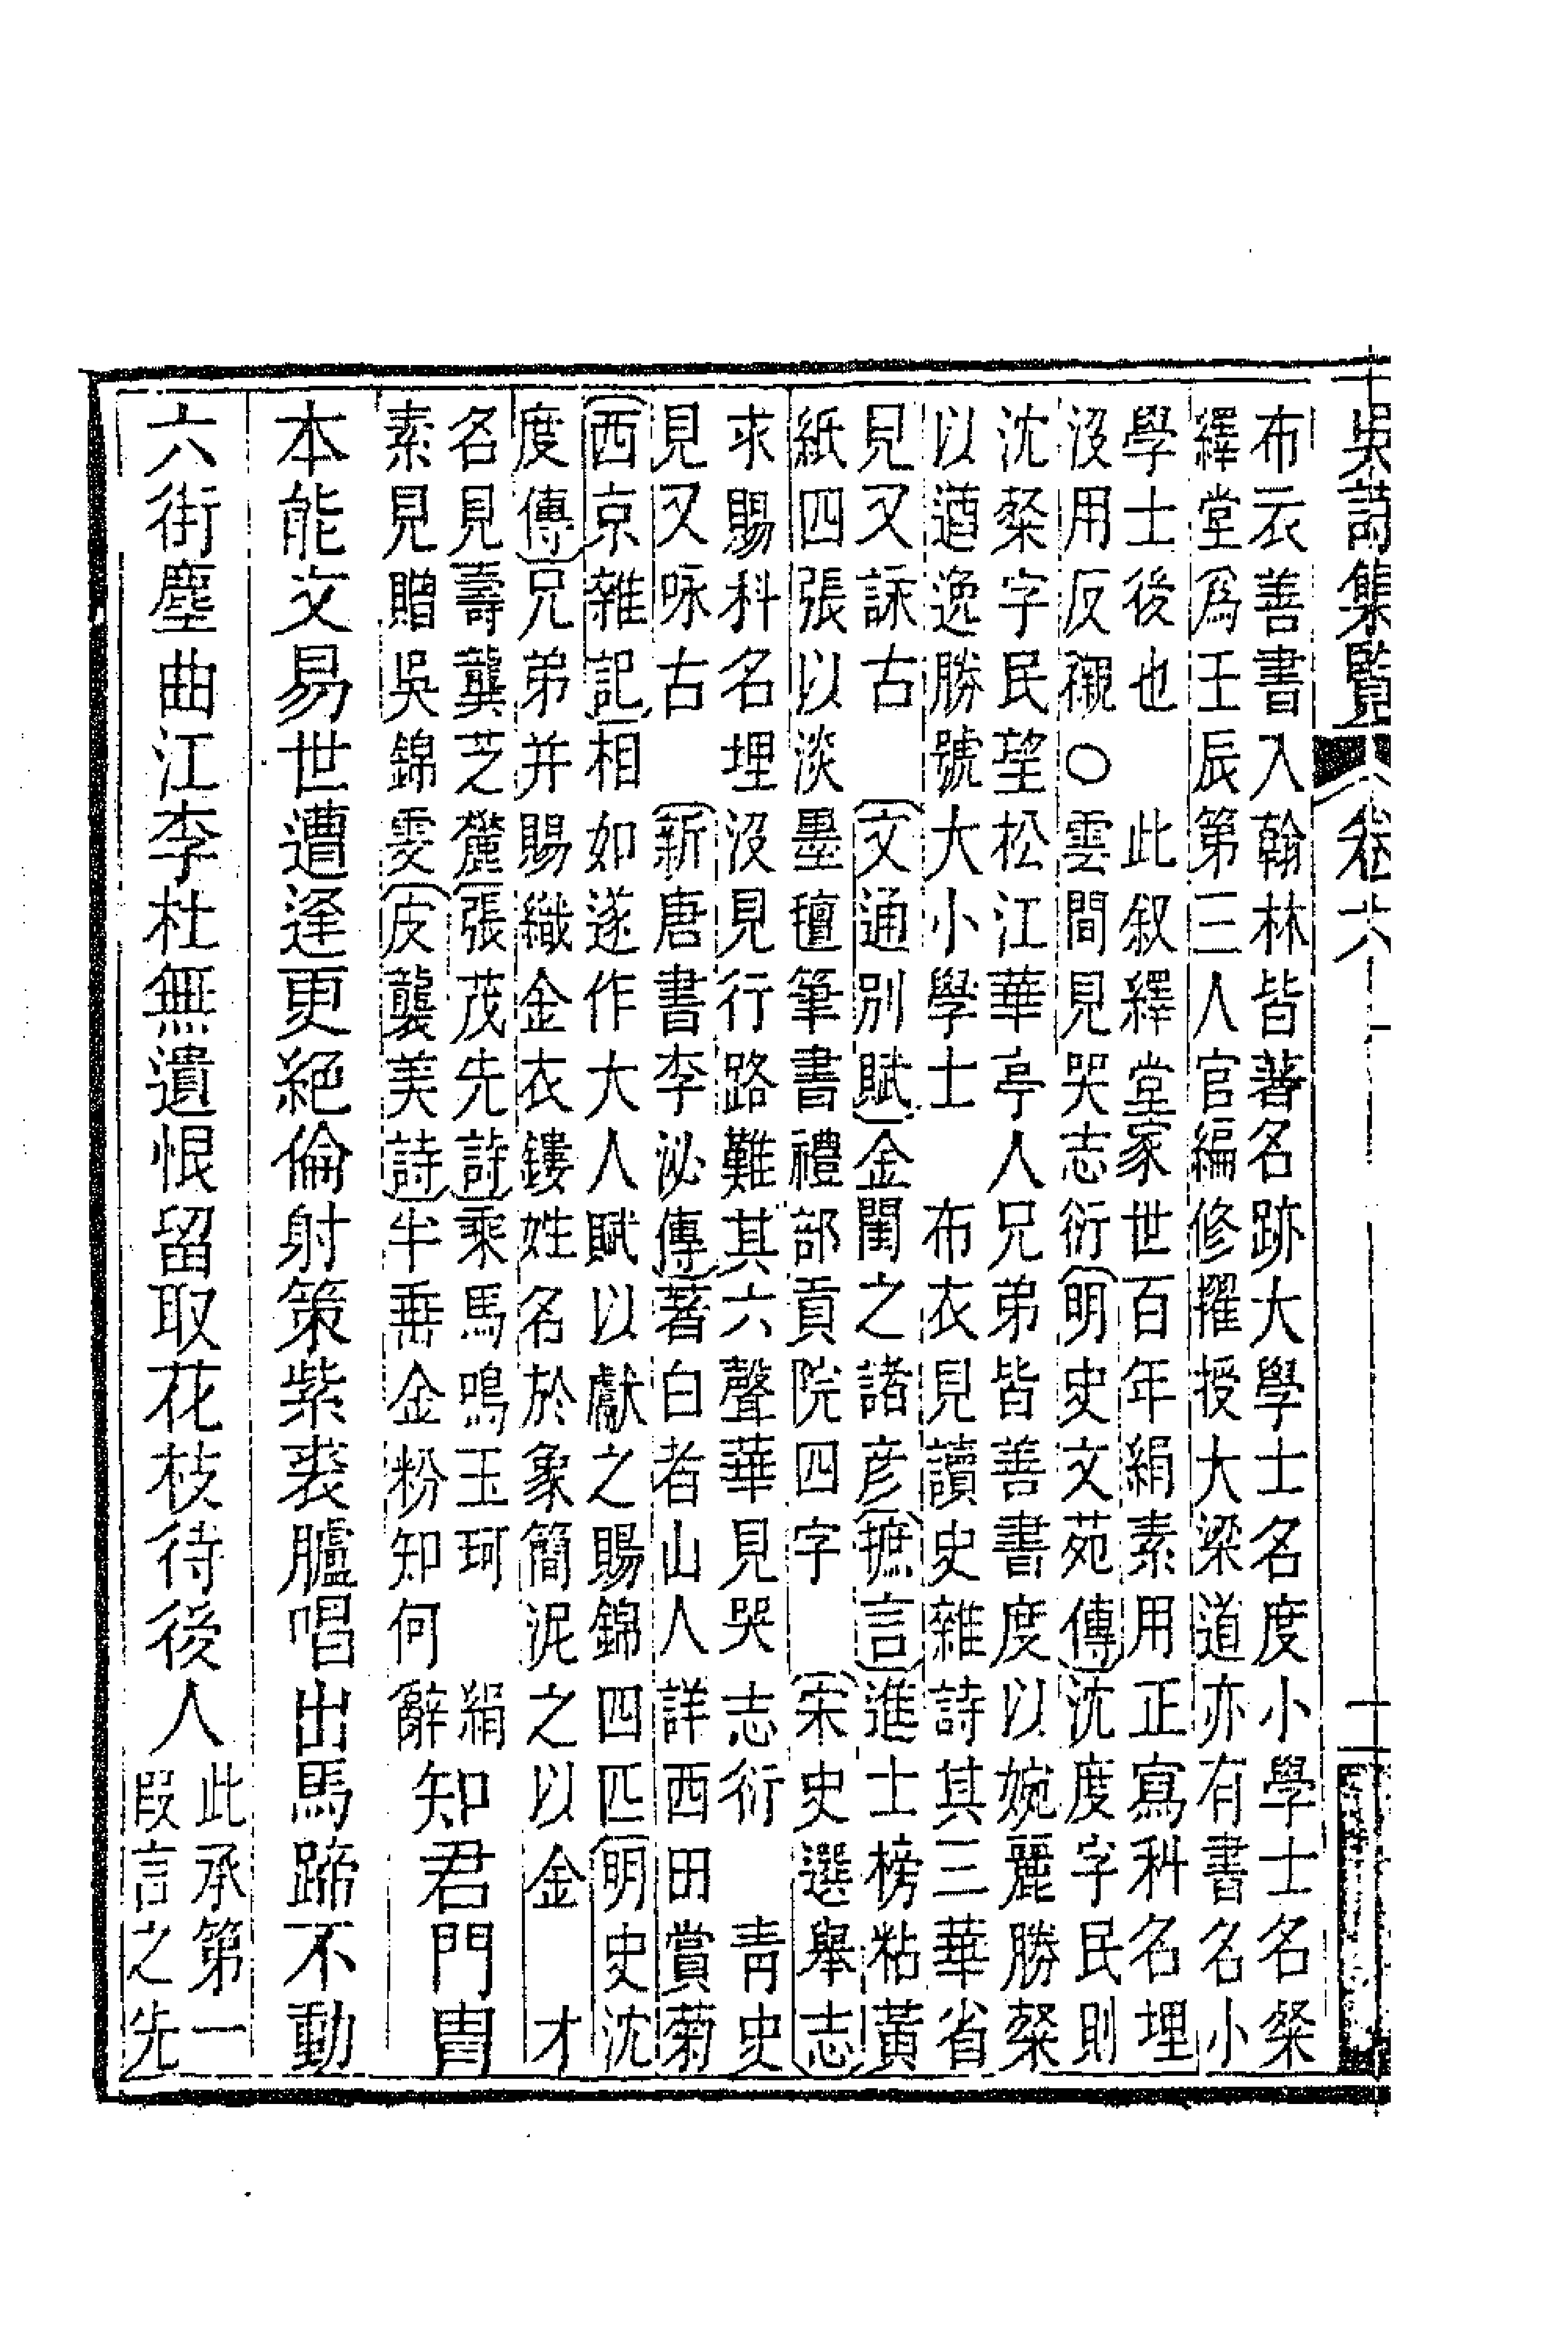 吳詩集覽 卷六 十一
布衣善書入翰林皆著名跡大學士名度小學士名粲
繹堂爲壬辰第三人官編修擢授大梁道亦有書名小
學士後也 此叙繹堂家世百年絹素用正寫科名埋
沒用反襯○雲間見哭志衍明史文苑傳沈度字民則
沈粲字民望松江華亭人兄弟皆善書度以婉麗勝粲
以遒逸勝號大小學士 布衣見讀史雜詩其三華省
見又詠古 文通別賦金閨之諸彥摭言進士榜粘黃
紙四張以淡墨氊筆書禮部貢院四字 宋史選舉志
求賜科名埋沒見行路難其六聲華見哭志衍 靑史
見又咏古 新唐書李泌傳著白者山人詳西田賞菊
西京雜記相如遂作大人賦以獻之賜錦四匹明史沈
度傳兄弟并賜織金衣鏤姓名於象簡泥之以金 才
名見壽龔芝麓張茂先詩乘馬鳴玉珂 絹
素見贈吳錦雯皮襲美詩半垂金粉知何辭 知君門胄
本能文易世遭逢更絕倫射策紫裘臚唱出馬蹄不動
六街塵曲江李杜無遺恨留取花枝待後人
此承第一
段言之先